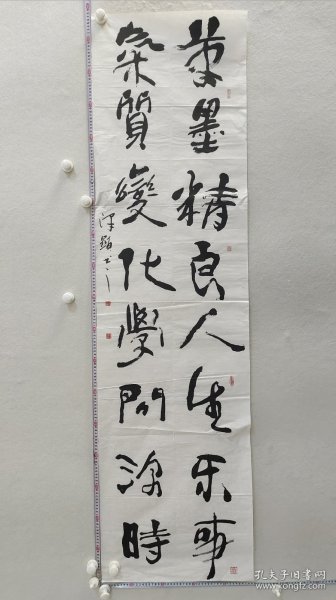 筆墨精良人生乐事
氣質變化學問深時
孔夫子旧书网
www.kongfz.com